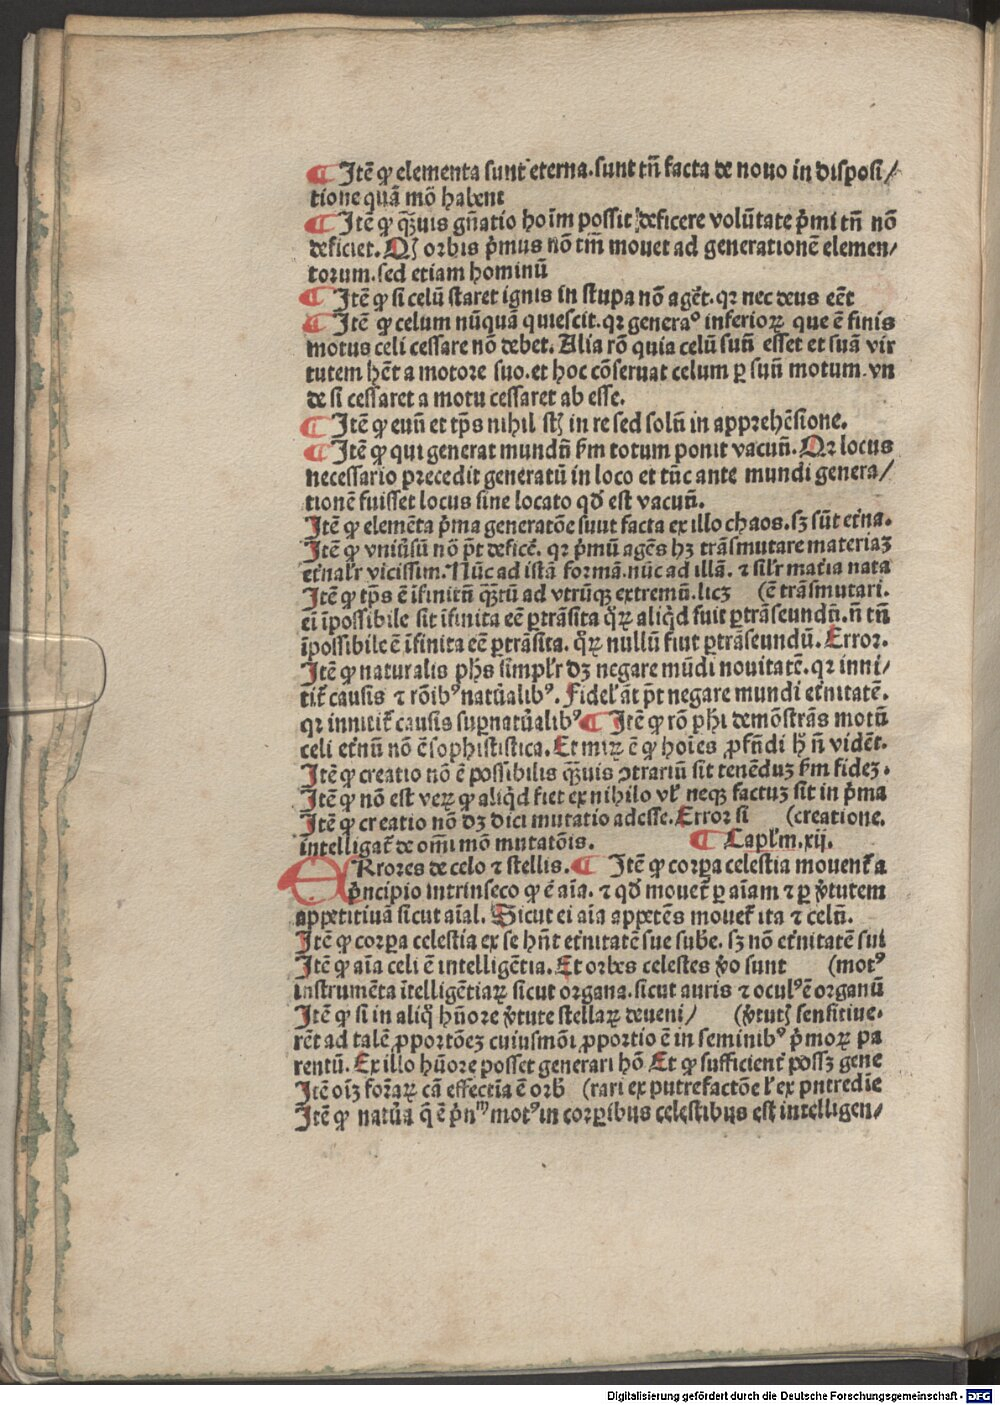 ¶ Itē ꝙ elementa sunt eterna. sunt tn̄ facta de nouo in disposi/
tione quā mō habent
¶ Itē ꝙ q̄ꝫuis gn̄atio hoīm possit deficere volūtate p̓mi tn̄ nō
deficiet. Qꝫ orbis p̓mus nō tm̄ mouet ad generationē elemen/
torum. sed etiam hominū
¶ Itē ꝙ si celū staret ignis in stupa nō agēt. qꝛ nec deus eēt
¶ Itē ꝙ celum nūquā quiescit. qꝛ generaᵒ inferioꝝ que ē finis
motus celi cessare nō debet. Alia rō quia celū suū esset et suā vir
tutem hēt a motore suo. et hoc cōseruat celum ꝑ suū motum. vn
de si cessaret a motu cessaret ab esse.
¶ Itē ꝙ euū et tꝑs nihil st̄ in re sed solū in apprehēsione.
¶ Itē ꝙ qui generat mundū ẜm totum ponit vacuū. Qꝛ locus
necessario precedit generatū in loco et tūc ante mundi genera/
tionē fuisset locus sine locato qd̓ est vacuū.
Itē ꝙ elemēta p̓ma generatōe suut facta ex illo chaos. sꝫ sūt et̓na.
Itē ꝙ vniūsū nō p̄t deficē. qꝛ p̓mū agēs hꝫ trāsmutare materiaꝫ
et̓nalr̓ vicissim. Nūc ad istā formā. nūc ad illā. ⁊ silr̓ mat̓ia nata
Itē ꝙ tꝑs ē īfinitū q̄ꝫtū ad vtrūqꝫ extremū. licꝫ (ē trāsmutari.
eī īpossibile sit īfinita eē ꝑtrāsita q̊ꝝ aliq̓d fuit ꝑtrāseundū. n̄ tn̄
īpossibile ē īfinita eē ꝑtrāsita. q̊ꝝ nullū fuit ꝑtrāseundū. Error.
Itē ꝙ naturalis ph̓s simplr̓ dꝫ negare mūdi nouitatē. qꝛ inni/
tit̄ causis ⁊ rōibꝰ natūalibꝰ. Fidel̓ āt p̄t negare mundi et̓nitatē.
qꝛ innitit̄ causis suꝑnatūalibꝰ ¶ Itē ꝙ rō phi demōstrās motū
celi et̓nū nō ē sophististica. Et miꝝ ē ꝙ hoīes ꝓfn̄di h̓ n̄ vidēt.
Itē ꝙ creatio nō ē possibilis q̄ꝫuis ꝯtrariū sit tenēduꝫ ẜm fideꝫ.
Itē ꝙ nō est veꝝ ꝙ aliq̓d fiet ex nihilo vl̓ neqꝫ factuꝫ sit in p̓ma
Itē ꝙ creatio nō dꝫ dici mutatio ad esse. Error si (creatione.
intelligat̄ de om̄i mō mutatōis. ¶ Capl̓m. xij.
ERrores de celo ⁊ stellis. ¶ Itē ꝙ corꝑa celestia mouent̄ a
p̓ncipio intrinseco ꝙ ē aīa. ⁊ qd̓ mouet̄ ꝑ aīam ⁊ ꝑ v̓tutem
appetitiuā sicut aīal. Sicut ei aīa appetēs mouet̄ ita ⁊ celū.
Itē ꝙ corꝑa celestia ex se hn̄t et̓nitatē sue sube. sꝫ nō et̓nitatē sui
Itē ꝙ aīa celi ē intelligētia. Et orbes celestes v̓o sunt (motꝰ
instrumēta ītelligētiaꝝ sicut organa. sicut auris ⁊ oculꝰ ē organū
Itē ꝙ si in aliq̊ hūore v̓tute stellaꝝ deueni/ (v̓tutꝭ sensitiue.
rēt ad talē ꝓportōeꝫ cuiusmōi ꝓportio ē in seminibꝰ p̓moꝝ pa
rentū. Ex illo hūore posset generari hō Et ꝙ sufficient̓ possꝫ gene
Itē oīꝫ formaꝝ cā effectīa ē orb̓ (rari ex putrefactōe l̓ ex putredīe
Itē ꝙ natūa q̄ ē p̓nᵐ motꝰ in corꝑibus celestibus est intelligen/
Digitalisierung gefördert durch die Deutsche Forschungsgemeinschaft - DFG